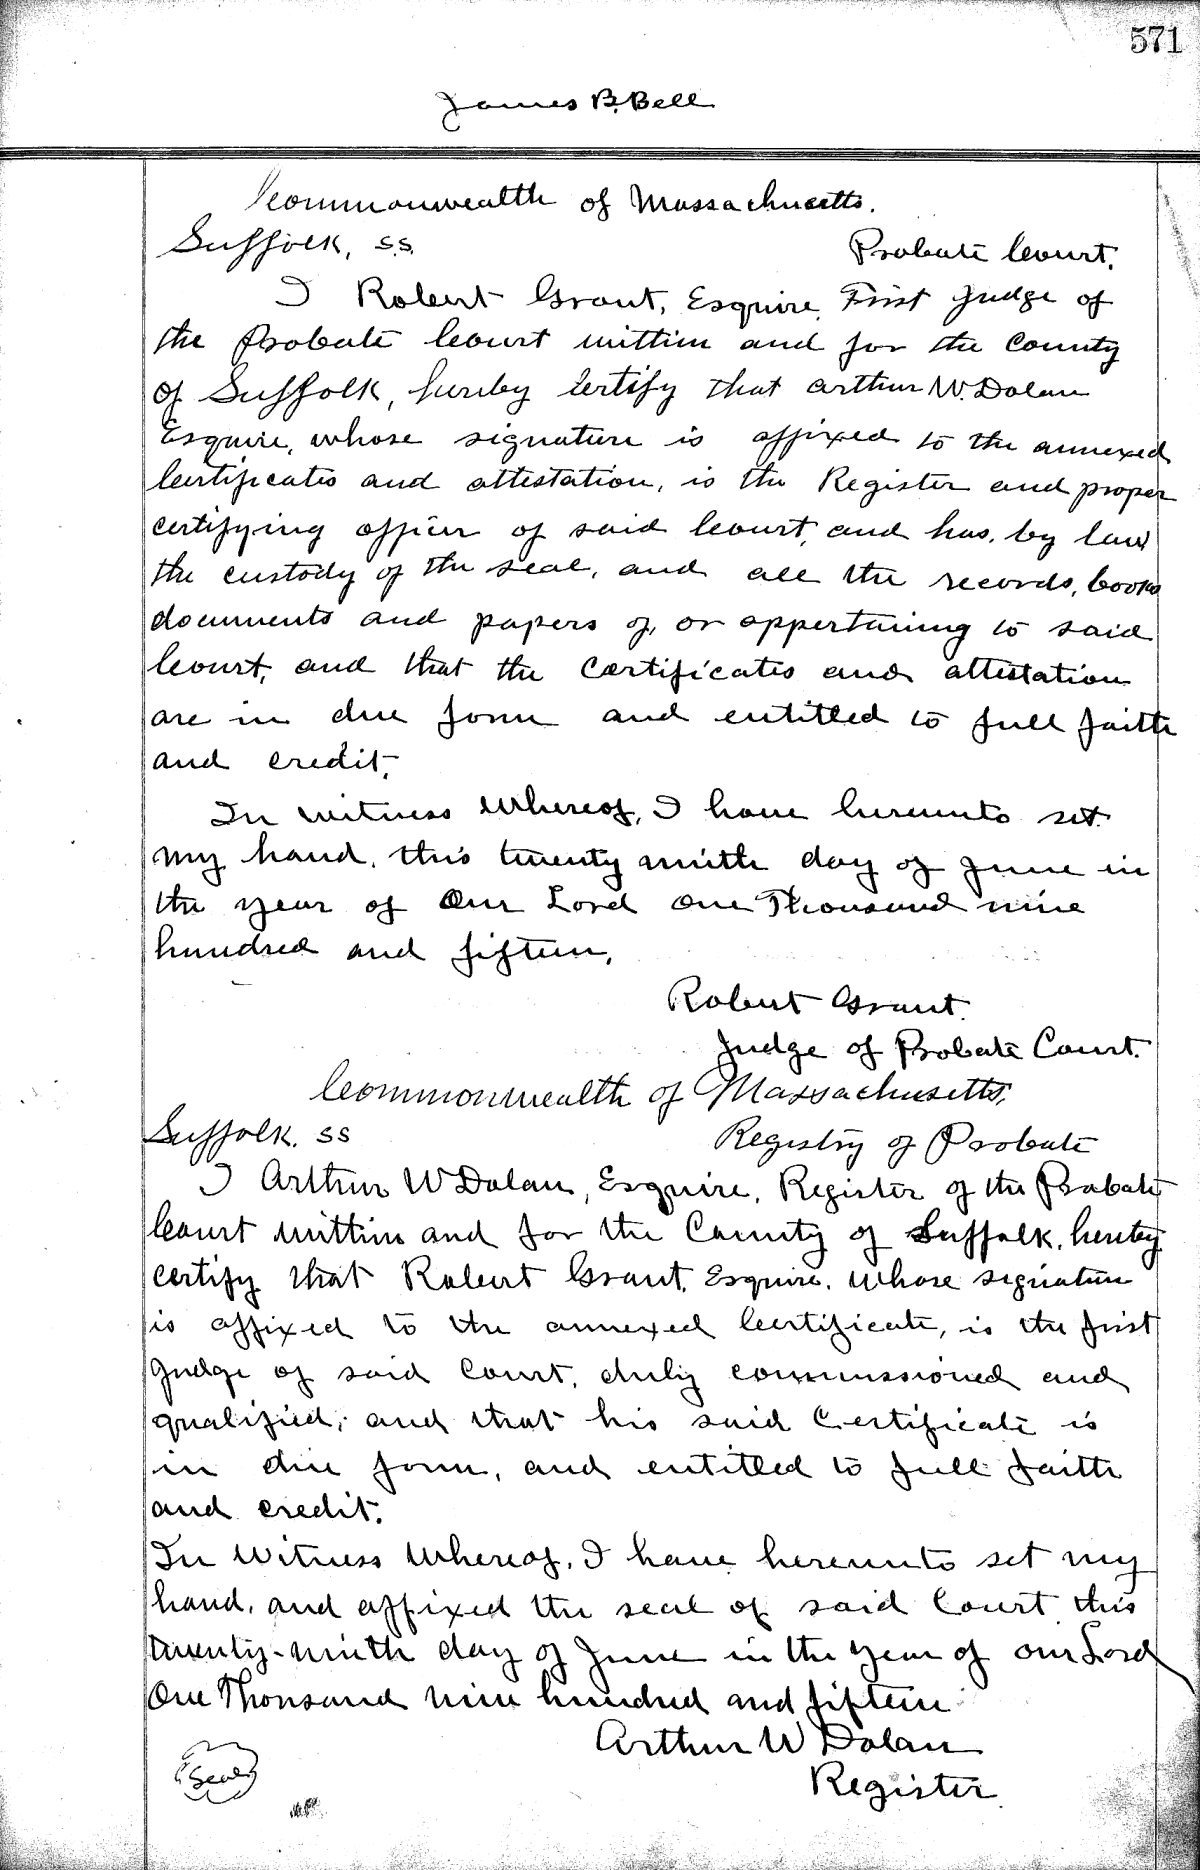 571
James B. Bell
Commonwealth of Massachusetts.
Suffolk, s.s.
Probate Court.
I Robert Grant, Esquire, First Judge of
the Probate Court within and for the County
of Suffolk, hereby certify that Arthur W. Dolan
Esquire, whose signature is affixed to the annexed
Certificates and attestation, is the Register and proper
certifying officer of said Court, and has, by law
the custody of the seal, and all the records, books
documents and papers of, or appertaining to said
Court, and that the Certificates and attestation
are in due form and entitled to full faith
and credit.
In witness Whereof, I have hereunto set
my hand, this twenty ninth day of June in
the year of Our Lord One Thousand nine
hundred and fifteen.
Robert Grant.
Judge of Probate Court.
Commonwealth of Massachusetts.
Suffolk. ss
Registry of Probate
I Arthur W Dolan, Esquire, Register of the Probate
Court within and for the County of Suffolk, hereby
certify that Robert Grant, Esquire, whose signature
is affixed to the annexed Certificate, is the first
Judge of said Court, duly commissioned and
qualified, and that his said Certificate is
in due form, and entitled to full faith
and credit.
In Witness Whereof, I have hereunto set my
hand, and affixed the seal of said Court this
twenty-ninth day of June in the year of our Lord
One Thousand nine hundred and fifteen
Arthur W Dolan
Seal
Register